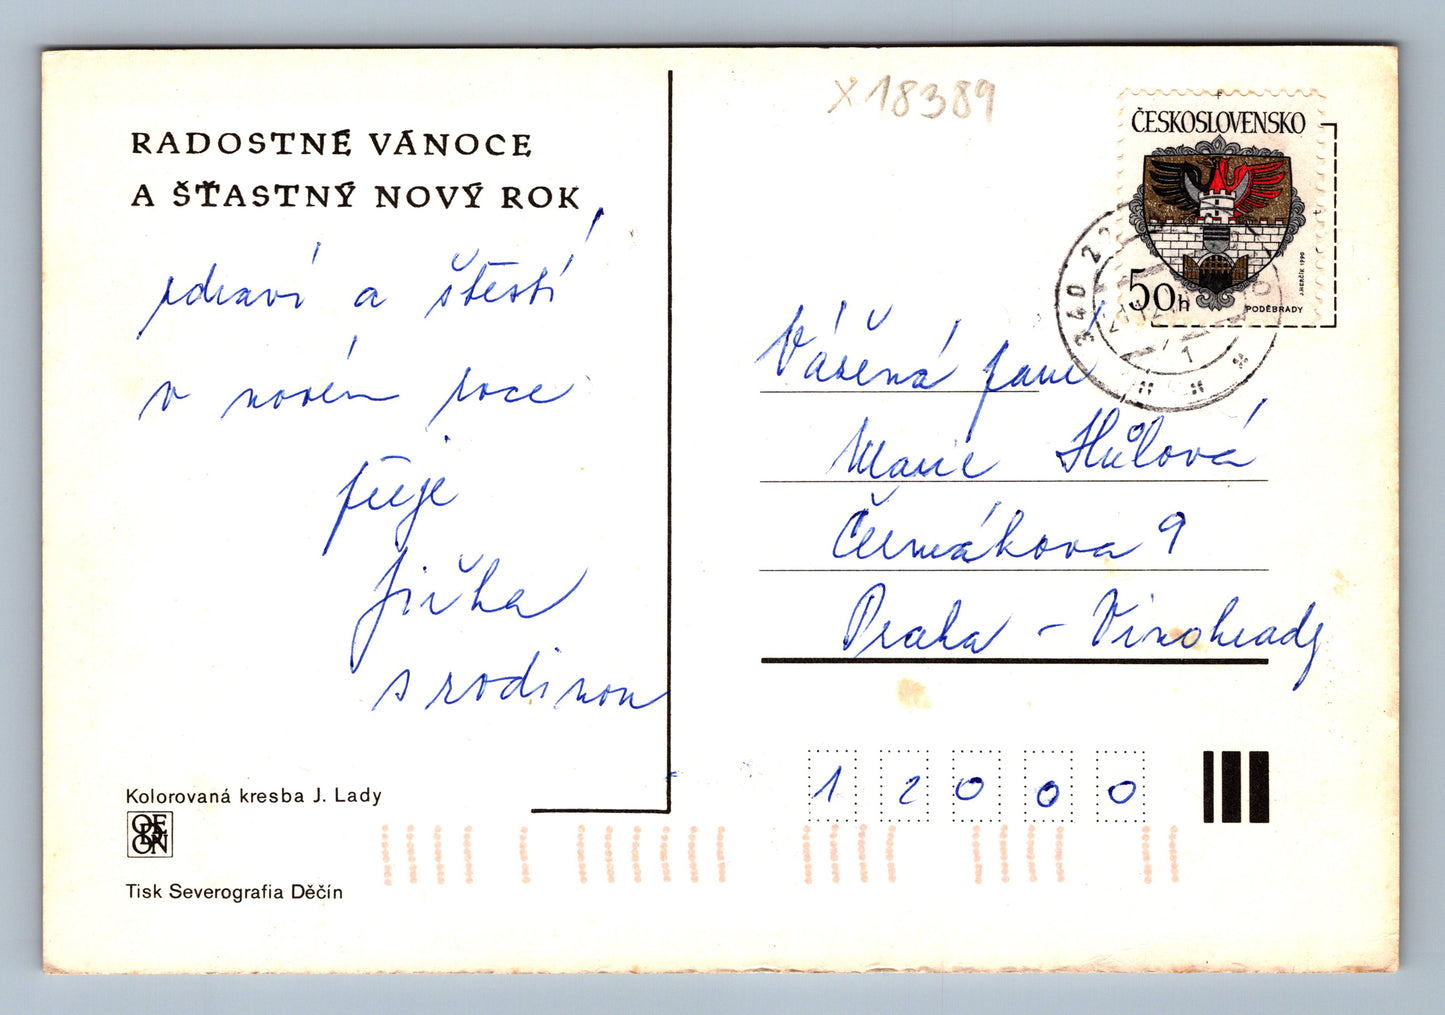 RADOSTNÉ VÁNOCE
A ŠŤASTNÝ NOVÝ ROK
zdraví a štěstí
v novém roce
přeje
Jiřka
s rodinou
Kolorovaná kresba J. Lady
ORBIS
Tisk Severografia Děčín
X 18389
ČESKOSLOVENSKO
50h
PODĚBRADY
J. HERČÍK 1990
340 22
Vážená paní
Marie Hůlová
Čermákova 9
Praha - Vinohrady
12000